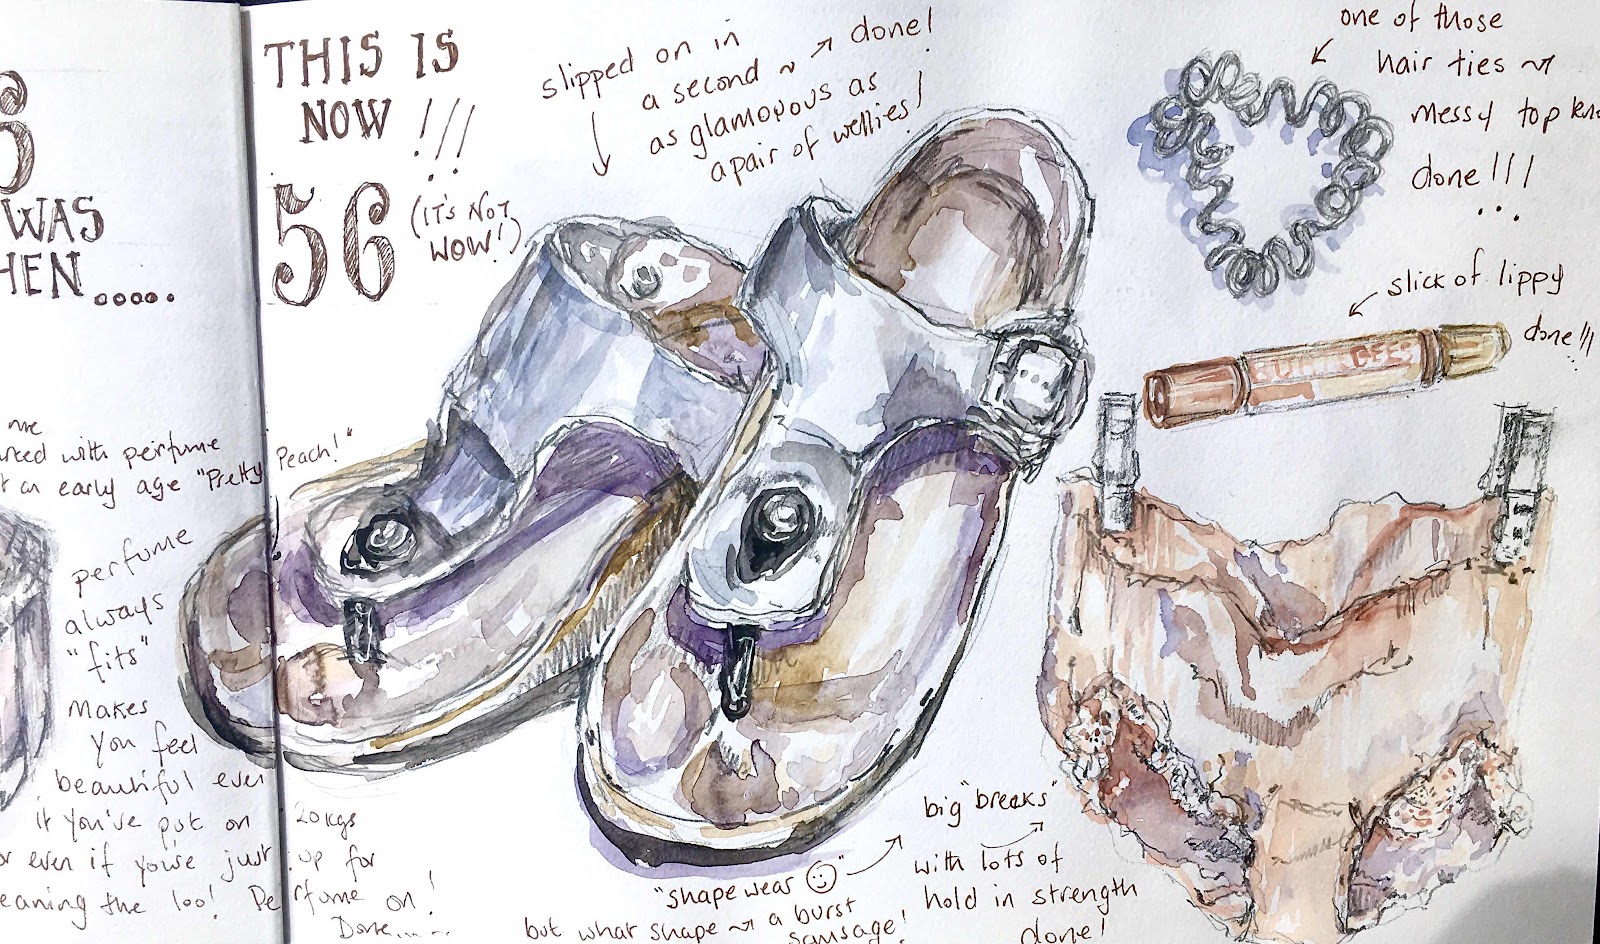 WAS
HEN.....
THIS IS
NOW!!!
56
(IT'S NOT
WOW!)
slipped on in
a second ~ → done!
as glamorous as
a pair of wellies!
one of those
hair ties ~
messy top
done!!!
...
slick of lippy
done!!!
me
with perfume
an early age "Pretty Peach!"
perfume
always
"fits"
makes
you feel
beautiful even
if you've put on 20kgs
or even if you've just up for
the loo! Perfume on!
Done......
"shape wear ☺"
but what shape ~ a burst
sausage!
big "breaks"
with lots of
hold in strength
done!